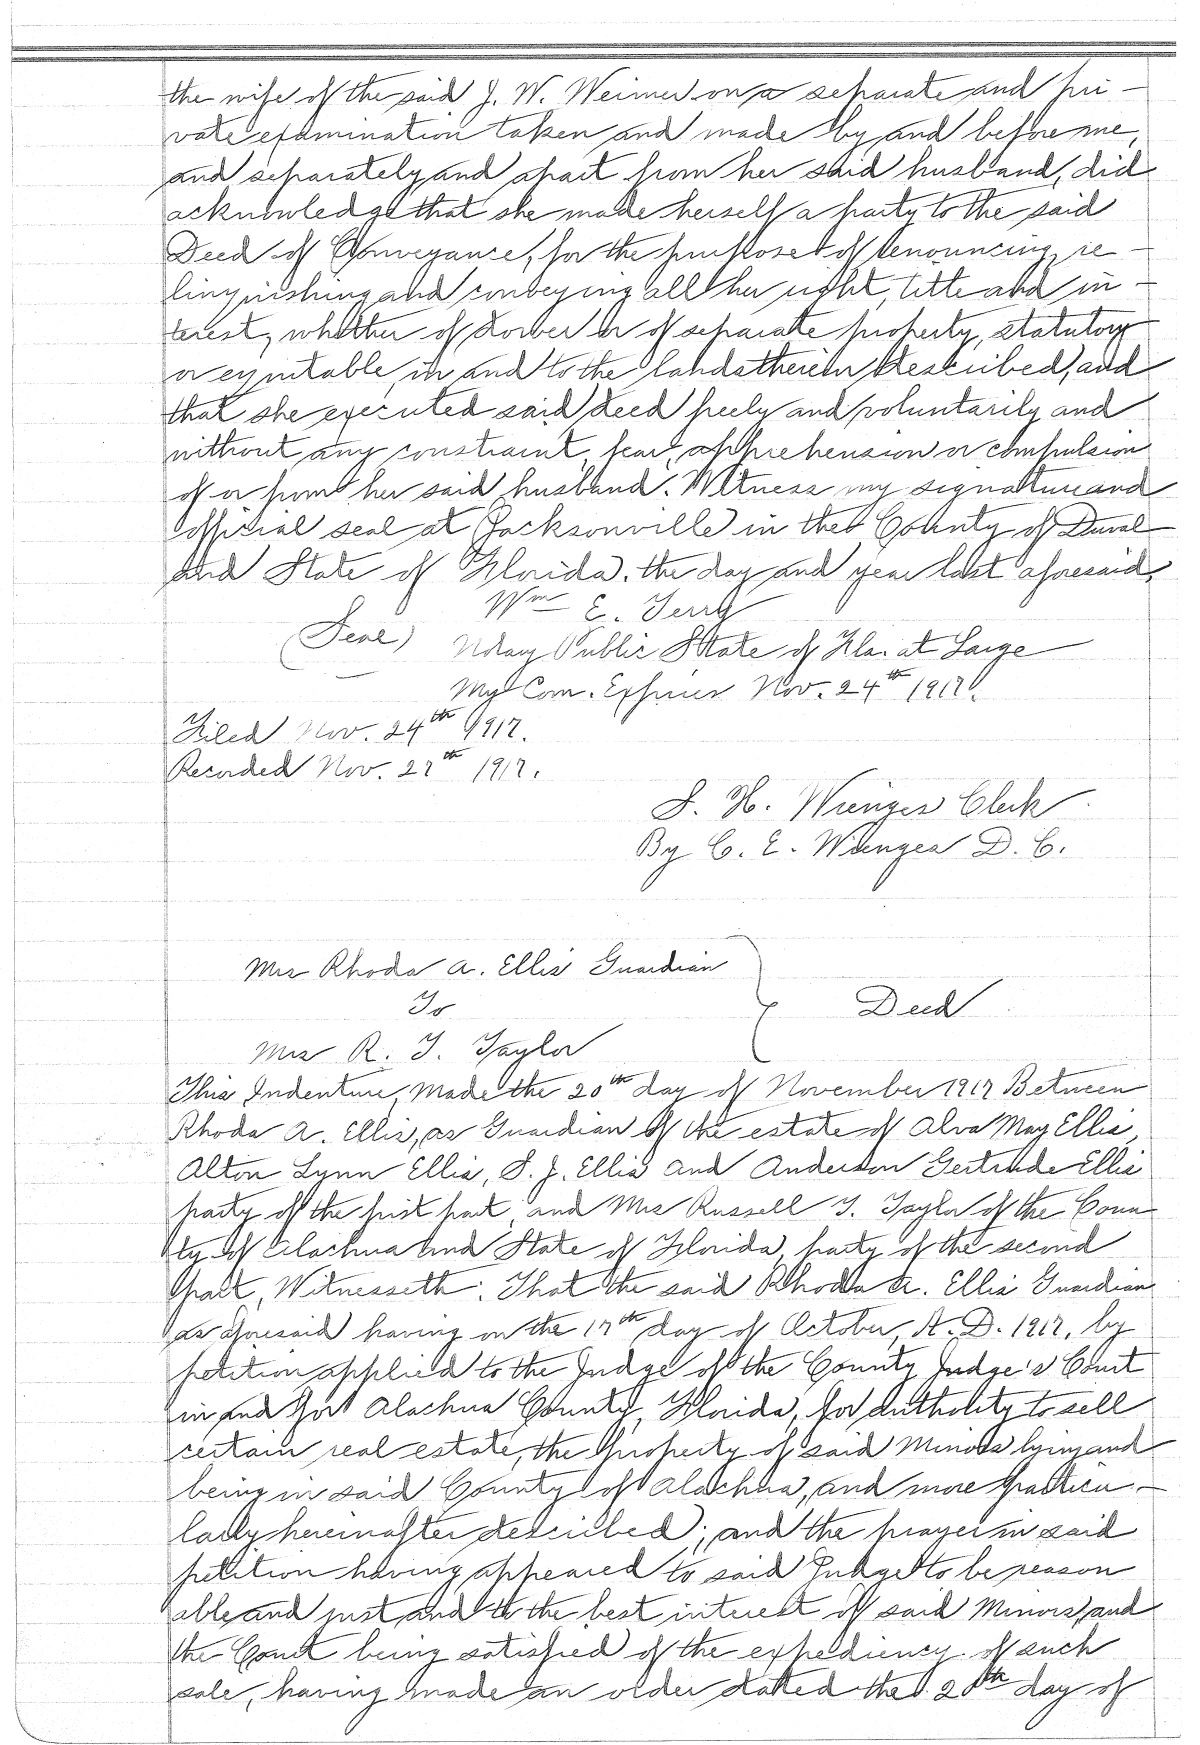 the wife of the said J. W. Weimer on a separate and pri-
vate examination taken and made by and before me,
and separately and apart from her said husband, did
acknowledge that she made herself a party to the said
Deed of Conveyance, for the purpose of renouncing, re-
linquishing and conveying all her right, title and in-
terest, whether of dower or of separate property, statutory
or equitable, in and to the lands therein described, and
that she executed said deed freely and voluntarily and
without any constraint, fear, apprehension or compulsion
of or from her said husband. Witness my signature and
official seal at Jacksonville in the County of Duval
and State of Florida, the day and year last aforesaid.
Wm E. Terry
(Seal) Notary Public State of Fla. at Large
My Com. Expires Nov. 24th 1917.
Filed Nov. 24th 1917.
Recorded Nov. 27th 1917.
S. H. Wienges Clerk
By C. E. Wienges D. C.
Mrs Rhoda A. Ellis Guardian
To
Deed
Mrs R. T. Taylor
This Indenture, Made the 20th day of November 1917 Between
Rhoda A. Ellis, as Guardian of the estate of Alva May Ellis,
Alton Lynn Ellis, S. J. Ellis and Anderson Gertrude Ellis
party of the first part, and Mrs Russell T. Taylor of the Coun
ty of Alachua and State of Florida, party of the second
part, Witnesseth: That the said Rhoda A. Ellis Guardian
as aforesaid having on the 17th day of October, A. D. 1917, by
petition applied to the Judge of the County Judge's Court
in and for Alachua County, Florida, for authority to sell
certain real estate, the property of said Minors lying and
being in said County of Alachua, and more particu-
larly hereinafter described; and the prayer in said
petition having appeared to said Judge to be reason
able and just and to the best interest of said Minors, and
the Court being satisfied of the expediency of such
sale, having made an order dated the 20th day of